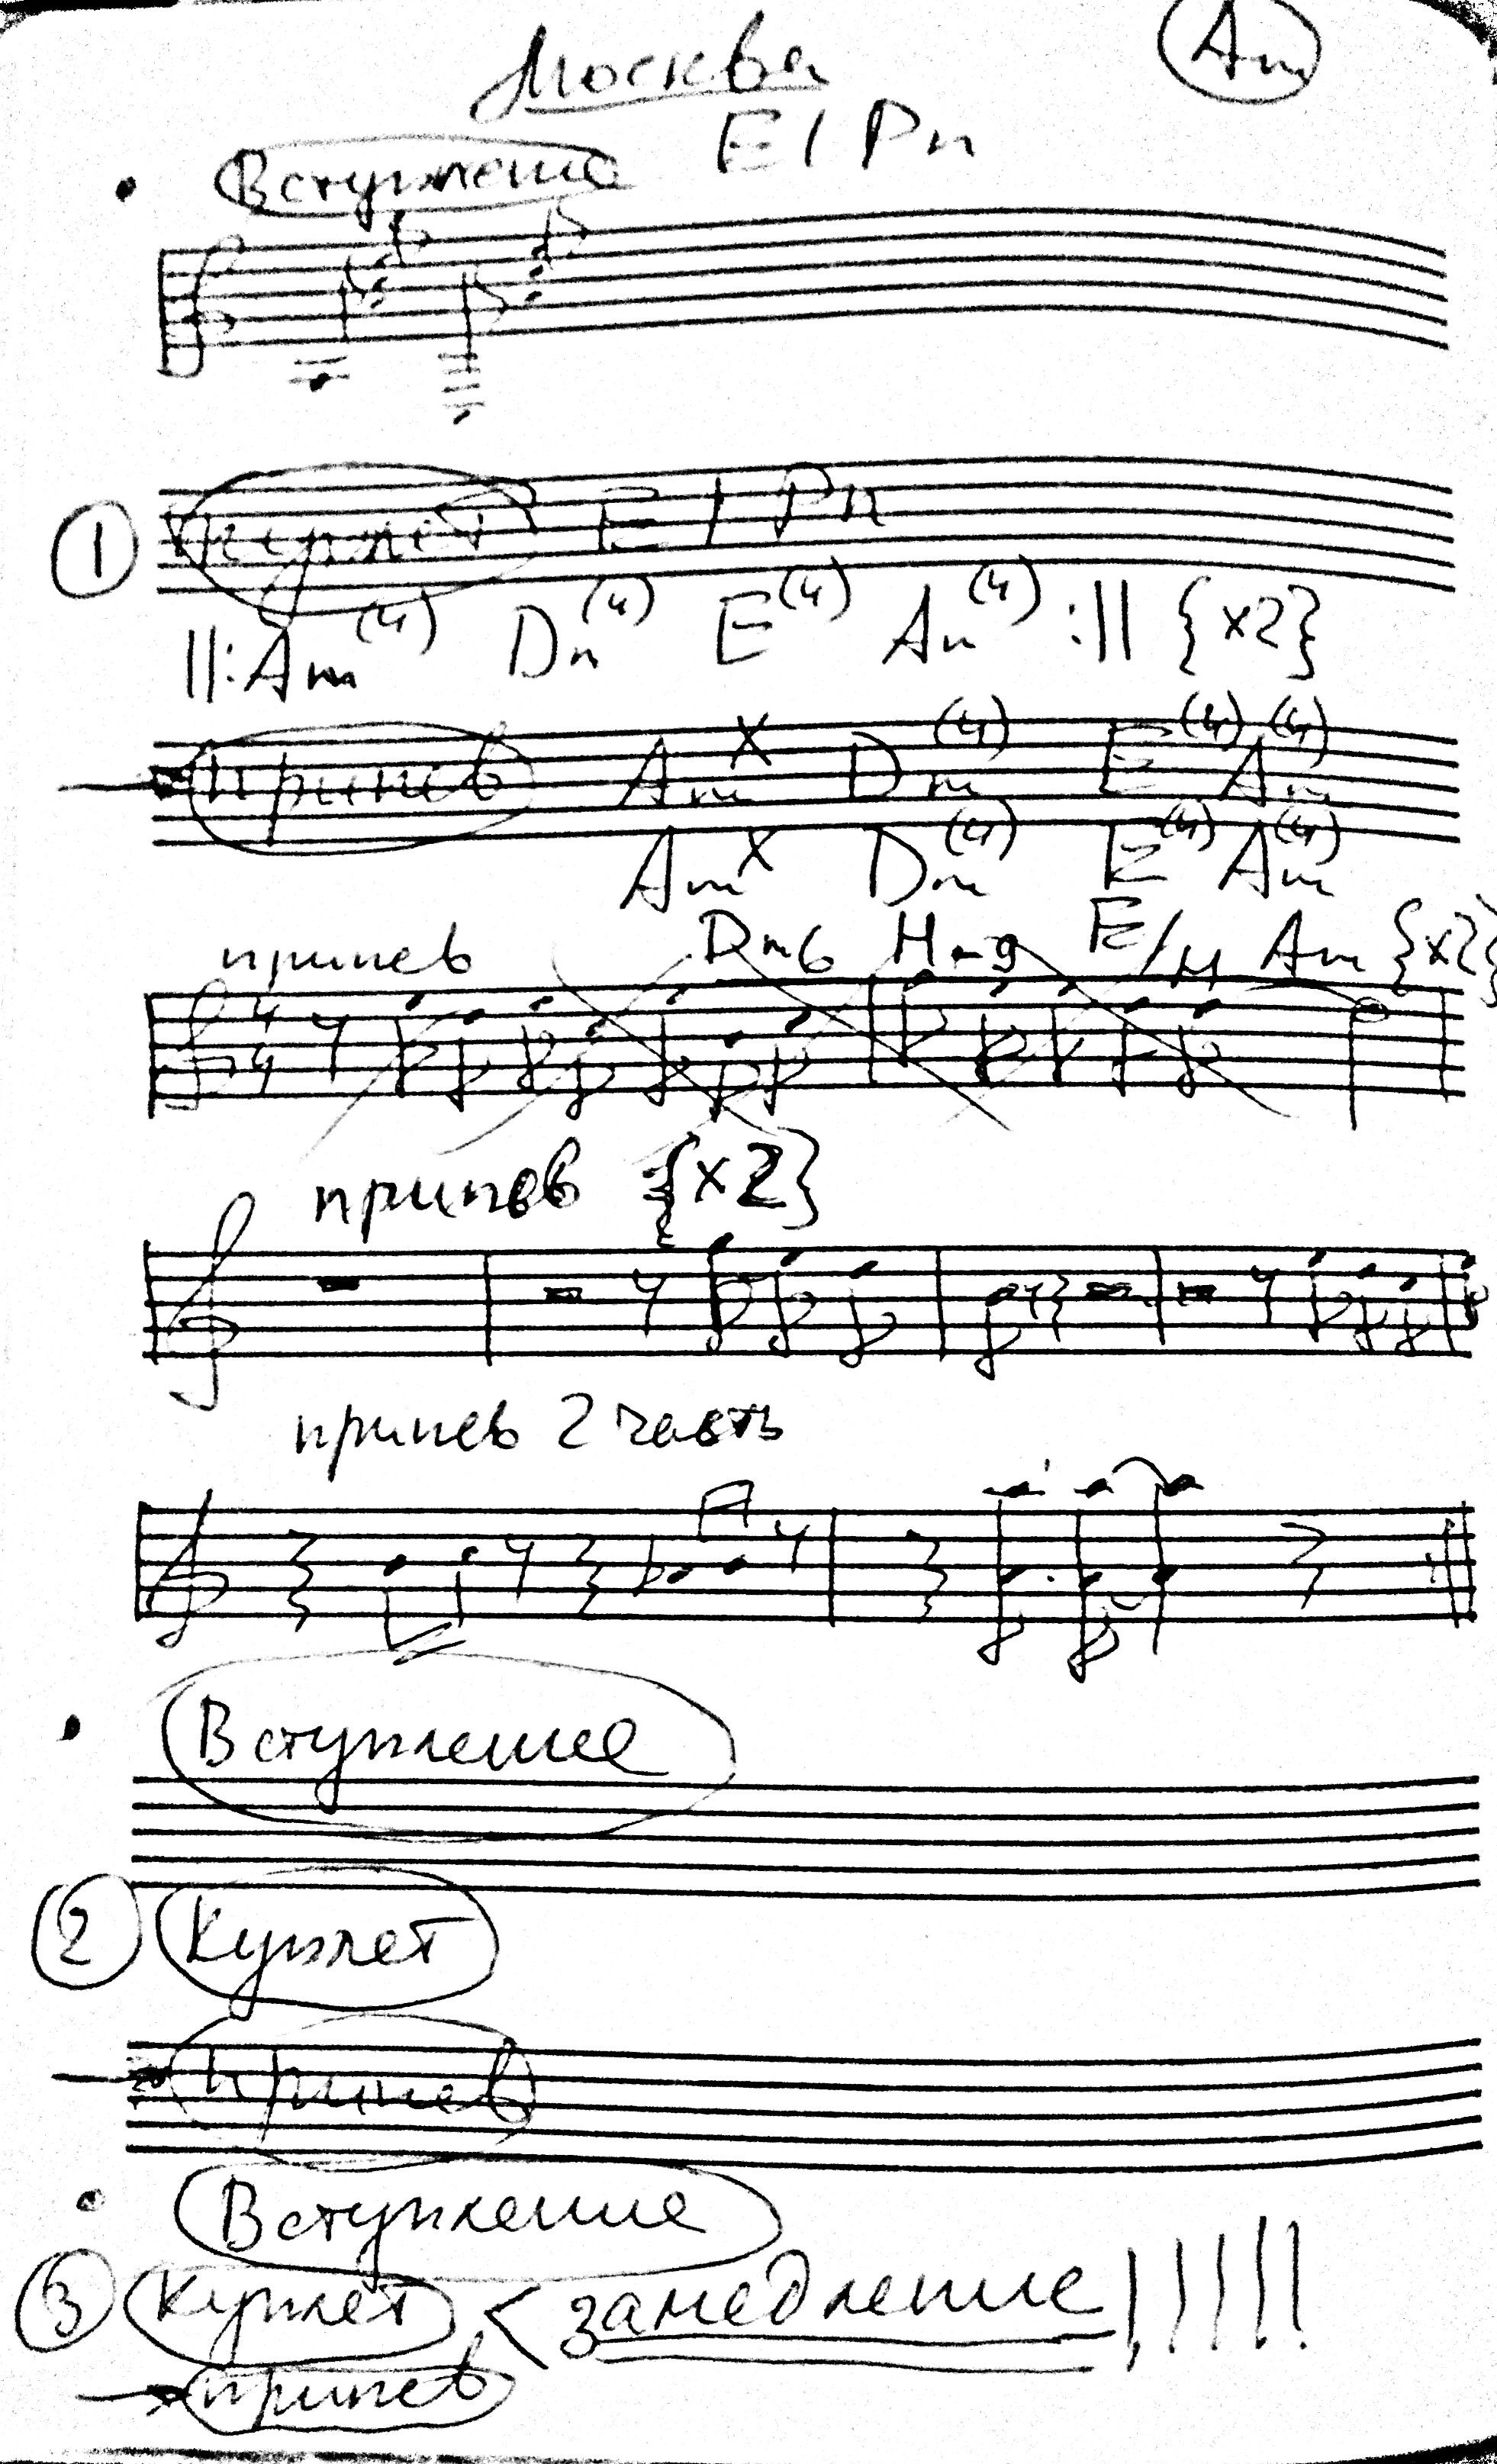 Москва Am
Вступление E / Pn
① куплет E / Pn
||: Am(4) Dm(4) E(4) Am(4) :|| {x2}
припев Am x Dm(4) E(4) Am(4)
Am x Dm(4) E(4) Am(4)
припев Dm6 E/H Am {x2}
4
4
припев {x2}
припев 2 часть
Вступление
② Куплет
припев
Вступление
③ Куплет < замедление !!!!!
припев